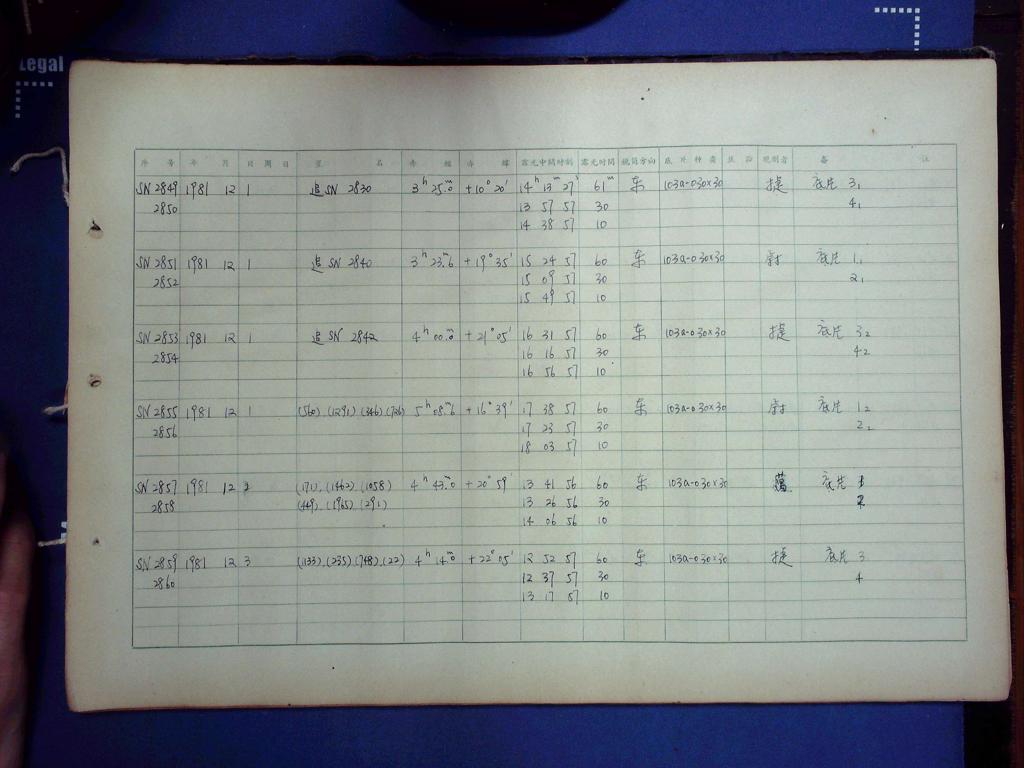 Legal
序 号 年 月 日 周 日 星 名 赤 经 赤 纬 露光中间时刻 露光时间 镜筒方向 底片种类 观测者 备 注
SN 2849 1981 12 1 追 SN 2830 3ʰ 25ᵐ.0 +10° 20′ 14ʰ 13ᵐ 27ˢ 61ᵐ 东 103a-0 30×30 捷 底片 3₁
2850 13 57 57 30 4₁
14 38 57 10
SN 2851 1981 12 1 追 SN 2840 3ʰ 23ᵐ.6 +19° 35′ 15 24 57 60 东 103a-0 30×30 底片 1₁
2852 15 09 57 30 2₁
15 49 57 10
SN 2853 1981 12 1 追 SN 2842 4ʰ 00ᵐ.0 +21° 05′ 16 31 57 60 东 103a-0 30×30 捷 底片 3₂
2854 16 16 57 30 4₂
16 56 57 10
SN 2855 1981 12 1 (560) (1291) (346) (726) 5ʰ 08ᵐ.6 +16° 39′ 17 38 57 60 东 103a-0 30×30 底片 1₂
2856 17 23 57 30 2₂
18 03 57 10
SN 2857 1981 12 2 (171) (1462) (1058) 4ʰ 43ᵐ.0 +20° 59′ 13 41 56 60 东 103a-0 30×30 底片 1
2858 (449) (1965) (291) 13 26 56 30 2
14 06 56 10
SN 2859 1981 12 3 (1133) (235) (748) (22) 4ʰ 14ᵐ.0 +22° 05′ 12 52 57 60 东 103a-0 30×30 捷 底片 3
2860 12 37 57 30 4
13 17 57 10